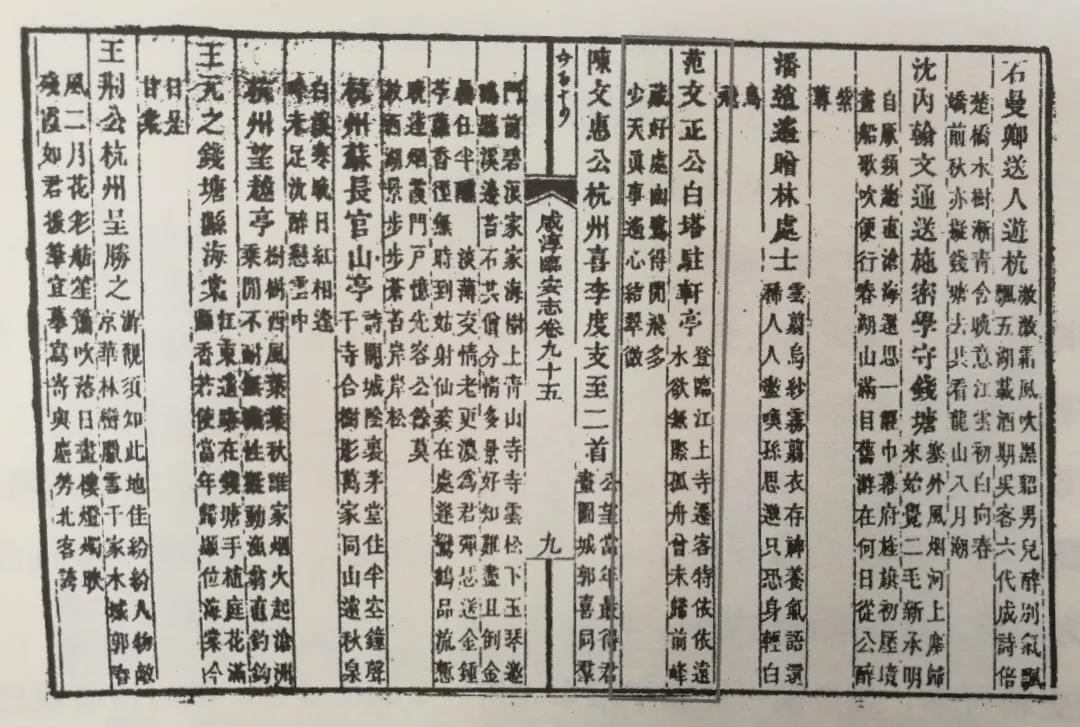 石曼卿送人遊杭
激激霜風吹黑貂男兒醉別氣飄
飄五湖載酒期吳客六代成詩倍
楚橋水樹漸青含晚意江雲初白向春
嬌前秋亦擬錢塘去共看龍山八月潮
沈內翰文通送施密學守錢塘
塞外風烟河上塵歸
來始覺二毛新承明
自厭頻趨直滄海還思一縱巾幕府旌旗初壓境
畫船歌吹便行春湖山滿目舊游在何日從公醉
紫
蓴
潘逍遙贈林處士
雲翦烏紗霧翦衣存神養氣語還
稀人人盡喚孫思邈只恐身輕白
鳥
飛
范文正公白塔駐軒亭
登臨江上寺遷客特依依遠
水欲無際孤舟曾未歸前峰
藏好處幽鷺得閒飛多
少天真事遙心結翠微
陳文惠公杭州喜李度支至二首
公望當年最得君
畫圖城郭喜同羣
咸淳臨安志卷九十五
九
門前碧浪家家海樹上青山寺寺雲松下玉琴邀
鶴聽溪邊苔石共僧分情多景好知難盡且倒金
罍任半醺 淡薄交情老更濃為君彈瑟送金鍾
苧蘿香徑無時到姑射仙姿在處逢鸞鶴品流慙
達烟霞門戶憶先容公餘莫
放西湖景步步蒼苔岸岸松
杭州蘇長官山亭
詩闢城陰裏茅堂住半空鐘聲
千寺合樹影萬家同山遠秋泉
白溪寒日紅相逢
吟未足沈醉戀雲中
杭州望越亭
樹樹西風葉葉秋誰家烟火起滄洲
乘閒不耐無性輕動漁翁直釣鈎
王元之錢塘縣海棠
江東遺跡在錢塘手植庭花滿
縣香若使當年歸顯位海棠今
日是
甘棠
王荊公杭州呈勝之
游觀須知此地佳紛紛人物敵
京華林巒臘雪千家水城郭春
風二月花彩舫笙簫吹落日畫樓燈燭映
殘霞如君援筆宜摹寫寄與塵勞北客誇